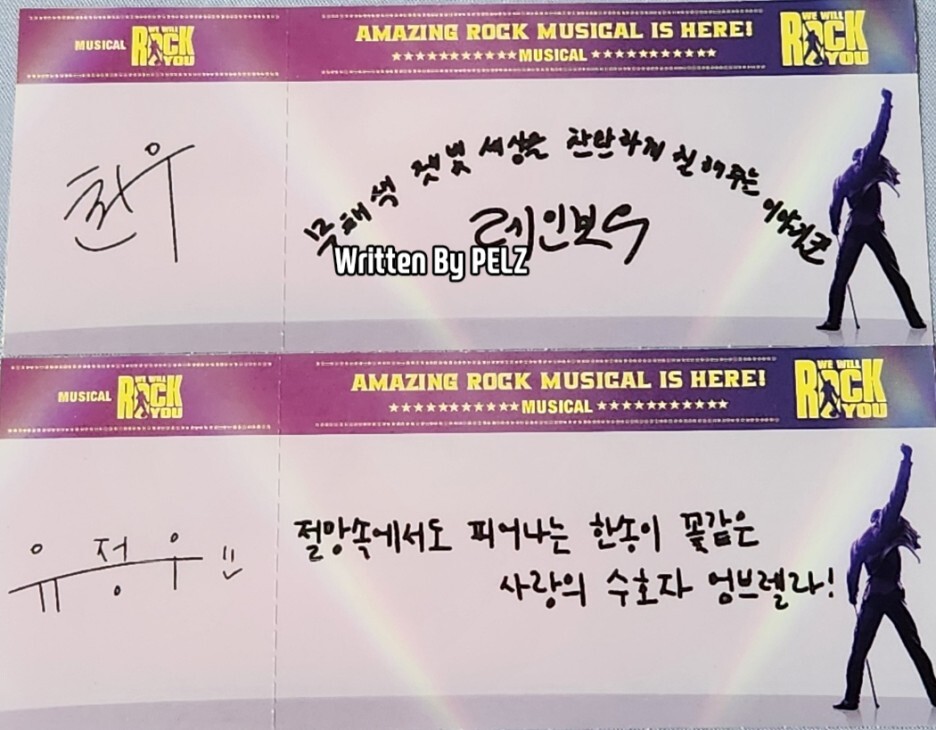 MUSICAL WE WILL ROCK YOU
AMAZING ROCK MUSICAL IS HERE!
★★★★★★★★★★★MUSICAL★★★★★★★★★★★
WE WILL ROCK YOU
무채색 잿빛 세상을 찬란하게 칠해주는 이야기꾼
레인보우
Written By PELZ
MUSICAL WE WILL ROCK YOU
AMAZING ROCK MUSICAL IS HERE!
★★★★★★★★★★★MUSICAL★★★★★★★★★★★
WE WILL ROCK YOU
유정우
절망속에서도 피어나는 한송이 꽃같은
사랑의 수호자 엄브렐라!